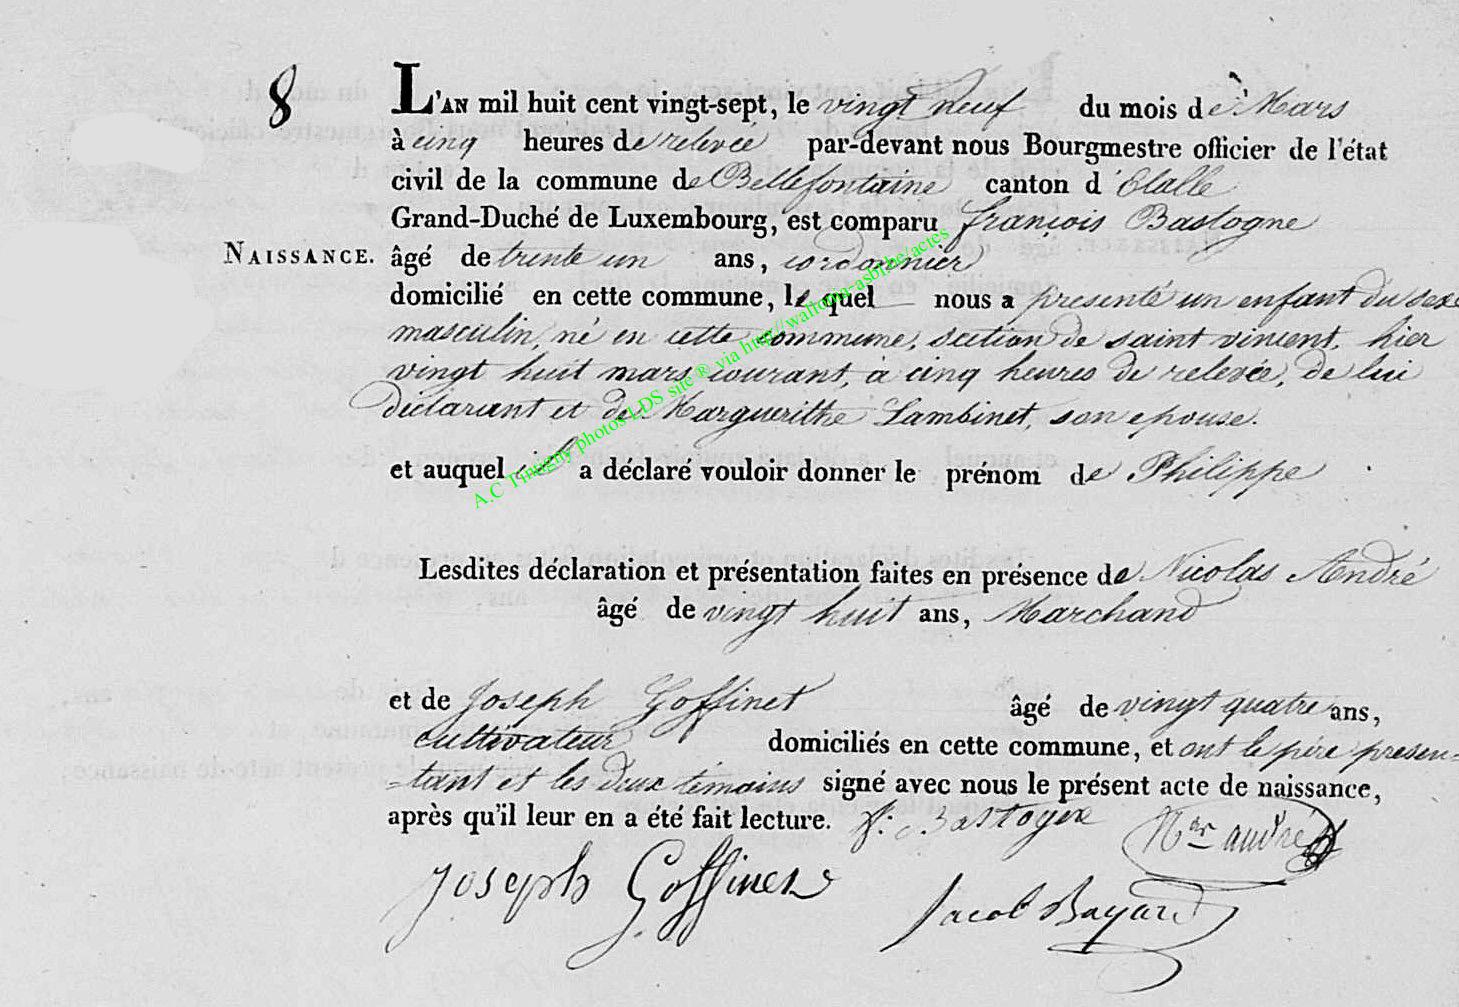 8
L'AN mil huit cent vingt-sept, le vingt neuf du mois de Mars
à cinq heures de relevée par-devant nous Bourgmestre officier de l'état
civil de la commune de Bellefontaine canton d'Etalle
Grand-Duché de Luxembourg, est comparu françois Bastogne
NAISSANCE. âgé de trente un ans, cordonnier
domicilié en cette commune, le quel nous a presenté un enfant du sexe
masculin, né en cette commune, section de saint vincent, hier
vingt huit mars courant, à cinq heures de relevée, de lui
déclarant et de Marguerithe Lambinet, son epouse.
et auquel il a déclaré vouloir donner le prénom de Philippe
Lesdites déclaration et présentation faites en présence de Nicolas André
âgé de vingt huit ans, Marchand
et de Joseph Goffinet âgé de vingt quatre ans,
cultivateur domiciliés en cette commune, et ont le père presen=
=tant et les deux témoins signé avec nous le présent acte de naissance,
après qu'il leur en a été fait lecture. f. Bastogne Nas andré
Joseph Goffinet Jacob Bayard
A.C Tintigny photos LDS site ® via http://wallonia-asbl.be/actes